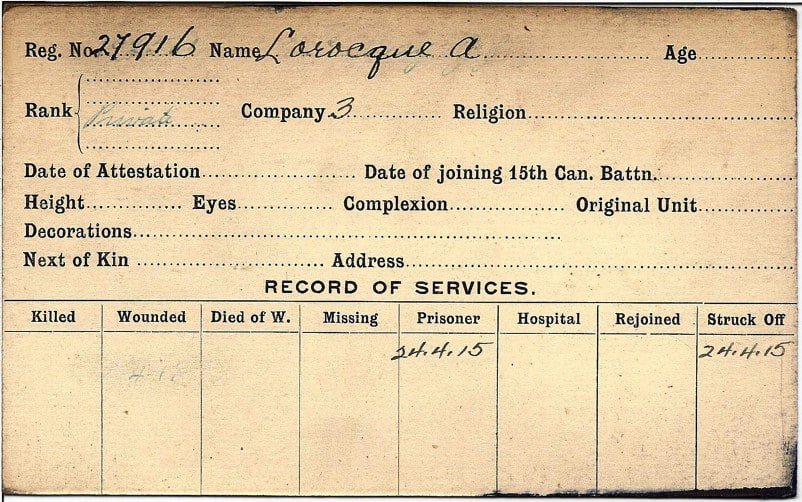 Reg. No. 27916 Name Lorocque A Age
Rank Private Company 3 Religion
Date of Attestation Date of joining 15th Can. Battn.
Height Eyes Complexion Original Unit
Decorations
Next of Kin Address
RECORD OF SERVICES.
Killed Wounded Died of W. Missing Prisoner Hospital Rejoined Struck Off
24.4.15 24.4.15